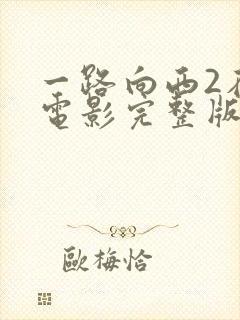 一路向西2
電影完整版
歐梅恰